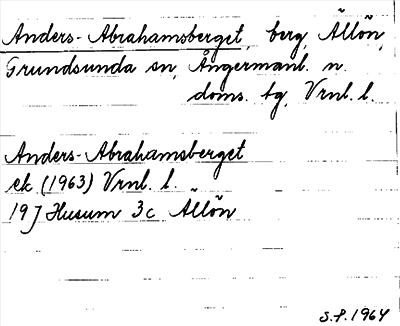 Anders-Abrahamsberget, berg, Ällön,
Grundsunda sn, Ångermanl. n.
doms. tg, Vrnl. l.
Anders-Abrahamsberget
ek (1963) Vrnl. l.
19J Husum 3c Ällön
S.P. 1964